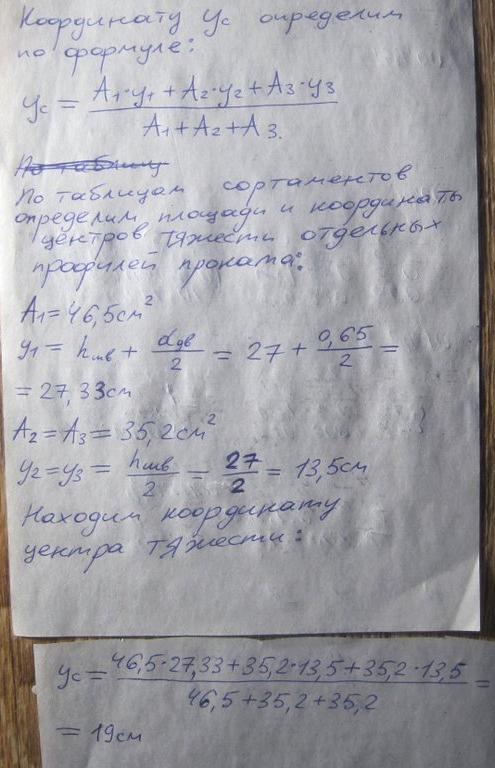 Координату yс определим
по формуле:
yс = A₁·y₁ + A₂·y₂ + A₃·y₃ / A₁ + A₂ + A₃.
По таблицам сортаментов
определим площади и координаты
центров тяжести отдельных
профилей проката:
A₁ = 46,5 см²
y₁ = hшв + dдв/2 = 27 + 0,65/2 =
= 27,33 см
A₂ = A₃ = 35,2 см²
y₂ = y₃ = hшв/2 = 27/2 = 13,5 см
Находим координату
центра тяжести:
yс = 46,5·27,33 + 35,2·13,5 + 35,2·13,5 / 46,5 + 35,2 + 35,2 =
= 19 см